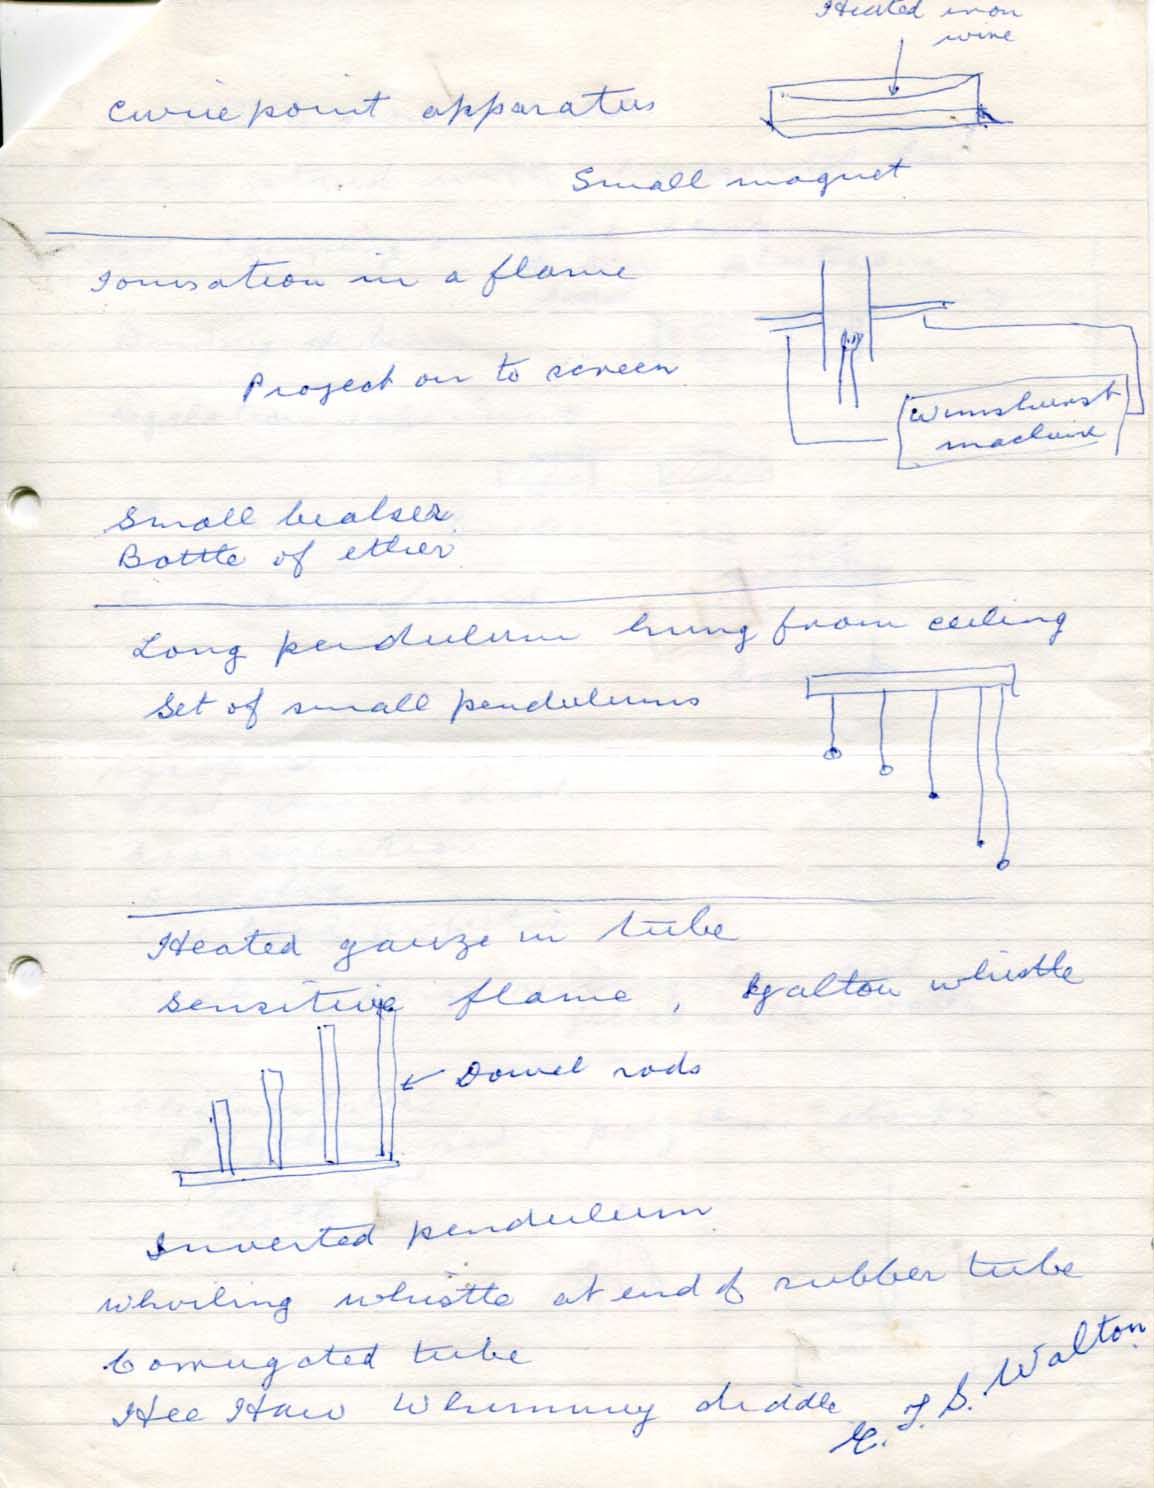 Heated iron
wire
Curie point apparatus
Small magnet
Ionisation in a flame
Project on to screen
Wimshurst
machine
Small beaker
Bottle of ether
Long pendulum hung from ceiling
Set of small pendulums
Heated gauze in tube
Sensitive flame, Galton whistle
Dowel rods
Inverted pendulum
Whirling whistle at end of rubber tube
Corrugated tube
Hee Haw Whimmy diddle
E. T. S. Walton